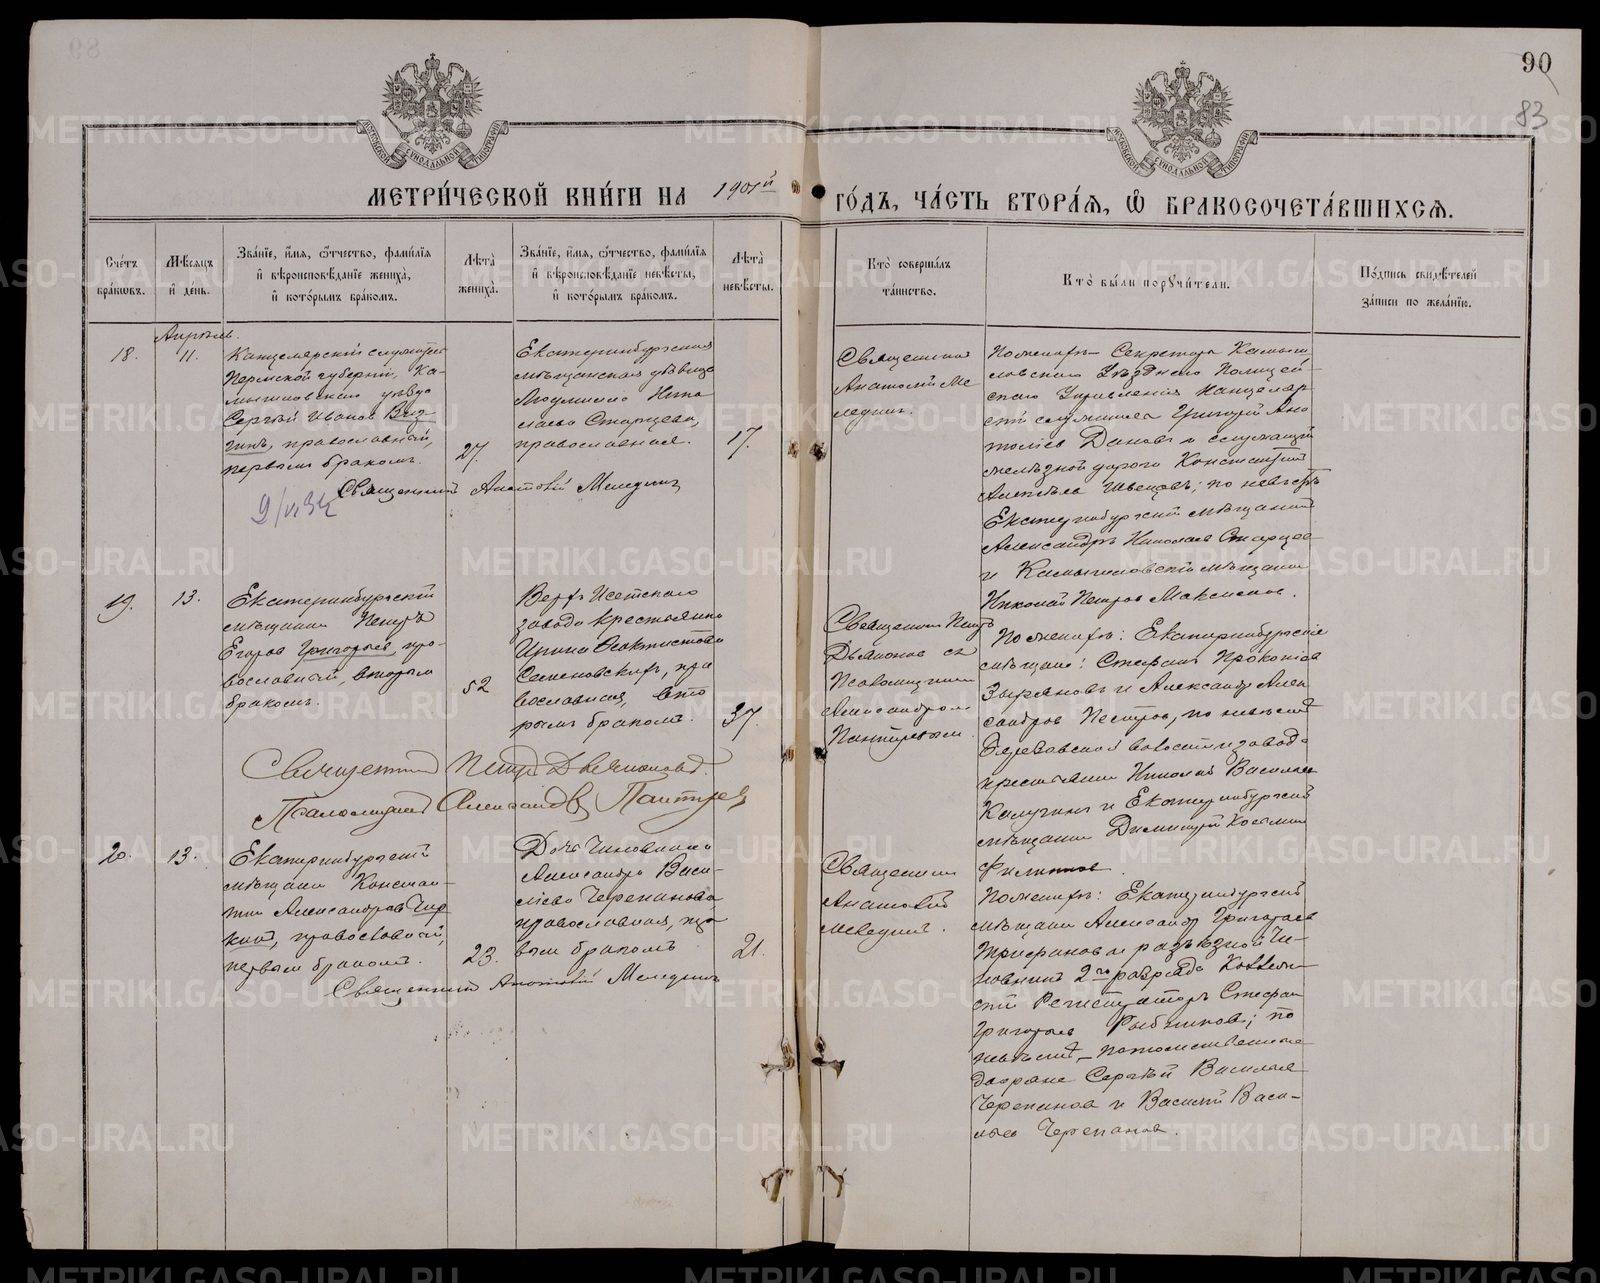 90
83
МЕТРИ́ЧЕСКОЙ КНИ́ГИ НА 1901й ГО́ДЪ, ЧА́СТЬ ВТОРА́Я, Ѽ БРАКОСОЧЕТА́ВШИХСЯ.
Сче́тъ бра́ковъ.
Мѣ́сяцъ и҆ де́нь.
Зва́нїе, и҆́мя, ѻ҆́тчество, фами́лїя
и҆ вѣроисповѣ́данїе жениха̀,
и҆ кото́рымъ бра́комъ.
Лѣ́та жениха̀.
Зва́нїе, и҆́мя, ѻ҆́тчество, фами́лїя
и҆ вѣроисповѣ́данїе невѣ́сты,
и҆ кото́рымъ бра́комъ.
Лѣ́та невѣ́сты.
Кто̀ соверша́лъ
та́инство.
Кто̀ бы́ли порꙋчи́тели.
По́дпись свидѣ́телей
за́писи по жела́нїю.
Апрѣль.
18.
11.
Канцелярскій служитель
Пермской губерніи, Ка-
мышловскаго уѣзда
Сергѣй Ивановъ
православный,
первымъ бракомъ.
27.
Екатеринбургская
мѣщанская дѣвица
Людмила Нико
лаева Старцева,
православная.
17.
Священникъ
Анатолій Ме
ледин.
По женихѣ – Секретарь Камыш
ловскаго Уѣзднаго Полицей-
скаго Управленія Канцеляр
служитель Григорій Ана
толіев и служащій
желѣзной дороги Константинъ
Швецовъ; по невѣстѣ
Екатеринбургскій мѣщанинъ
Александръ Николаев Старцев
и Камышловскій мѣщанинъ
Николай Петров Максимов.
Священникъ Анатолій Меледин
19.
13.
Екатеринбургскій
мѣщанинъ Петръ
Егоров Григорьев, пра-
вославный, вторым
бракомъ.
52
Верхъ Исетскаго
завода крестьянка
Ирина Феоктистова
Семеновскихъ, пра
вославная, вто
рымъ бракомъ.
37.
Священникъ Петръ
Дьяконов съ
Псаломщиком
Александром
По женихѣ: Екатеринбургскіе
мѣщане: Стефанъ Прокопіев
Зырянов и Александръ Алек
сандров Пестров, по невѣстѣ
Березовской волости и завода
крестьянинъ Николай Васильев
Калугинъ и Екатеринбургскій
мѣщанинъ Димитрій Козьмин
Филиппов.
Священник Петръ Дьяконов.
Псаломщикъ Александръ
20.
13.
Екатеринбургскій
мѣщанинъ Констан-
тин Александров
православный,
первым бракомъ.
23.
Дочь Чиновника
Александра Васи-
льева Черепанова
православная, пер
вым бракомъ
21.
Священникъ
Анатолій
Меледин.
По женихѣ: Екатеринбургскій
мѣщанин Александръ Григорьев
Трифанов и разъѣздной Чи-
новникъ 2го разряда Коллеж-
скій Регистраторъ Стефан
Григорьев Рыбников; по
невѣстѣ – потомственные
дворяне Сергѣй Васильев
Черепанов и Василій Васи-
льев Черепанов.
Священникъ Анатолій Меледин
METRIKI.GASO-URAL.RU